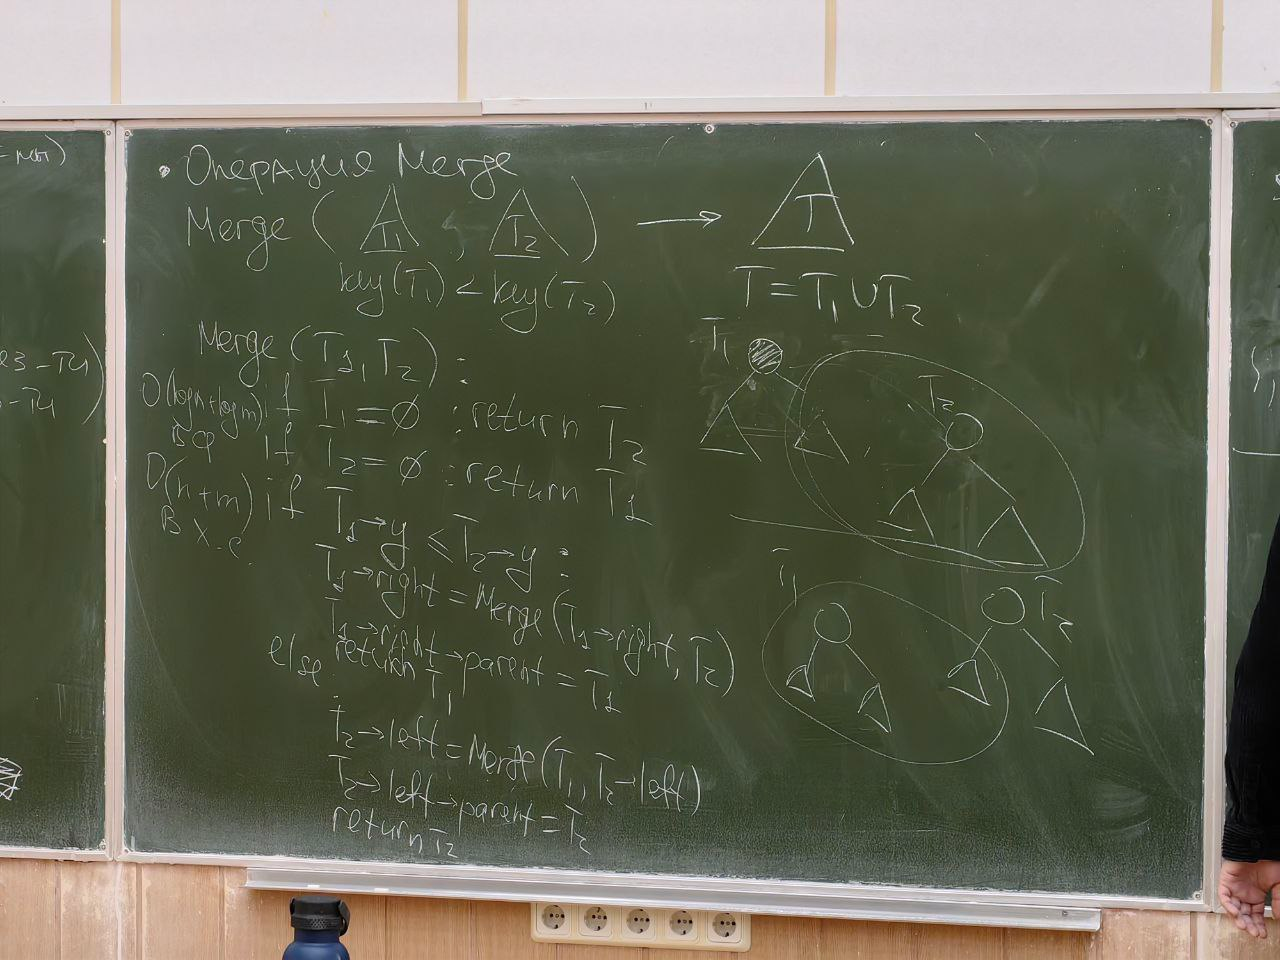 = мы)
• Операция Merge
Merge ( T₁ , T₂ ) → T
key(T₁) < key(T₂)
T = T₁ ∪ T₂
Merge (T₁, T₂) :
O(logn+logm) if T₁ = ∅ : return T₂
в ср if T₂ = ∅ : return T₁
O(n+m) if T₁→y ≤ T₂→y :
в х.с.
T₁→right = Merge (T₁→right, T₂)
T₁→right→parent = T₁
return T₁
else :
T₂→left = Merge (T₁, T₂→left)
T₂→left→parent = T₂
return T₂
T₁
T₂
T₁
T₂